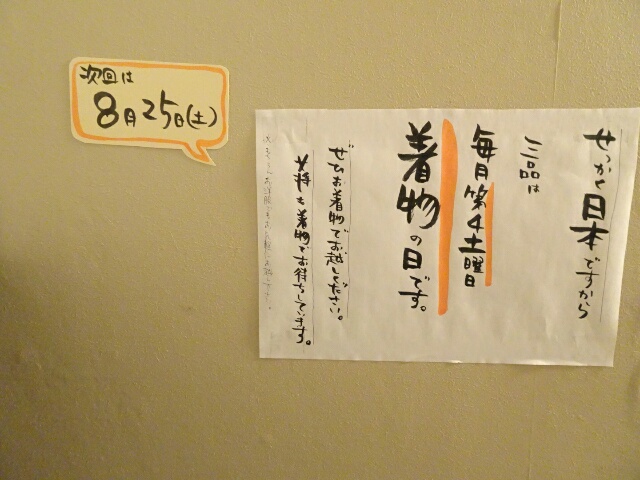 次回は
8月25日(土)
せっかく日本ですから
三品は
毎月第4土曜日
着物の日です。
ぜひお着物でお越しください。
女将も着物でお待ちしています。